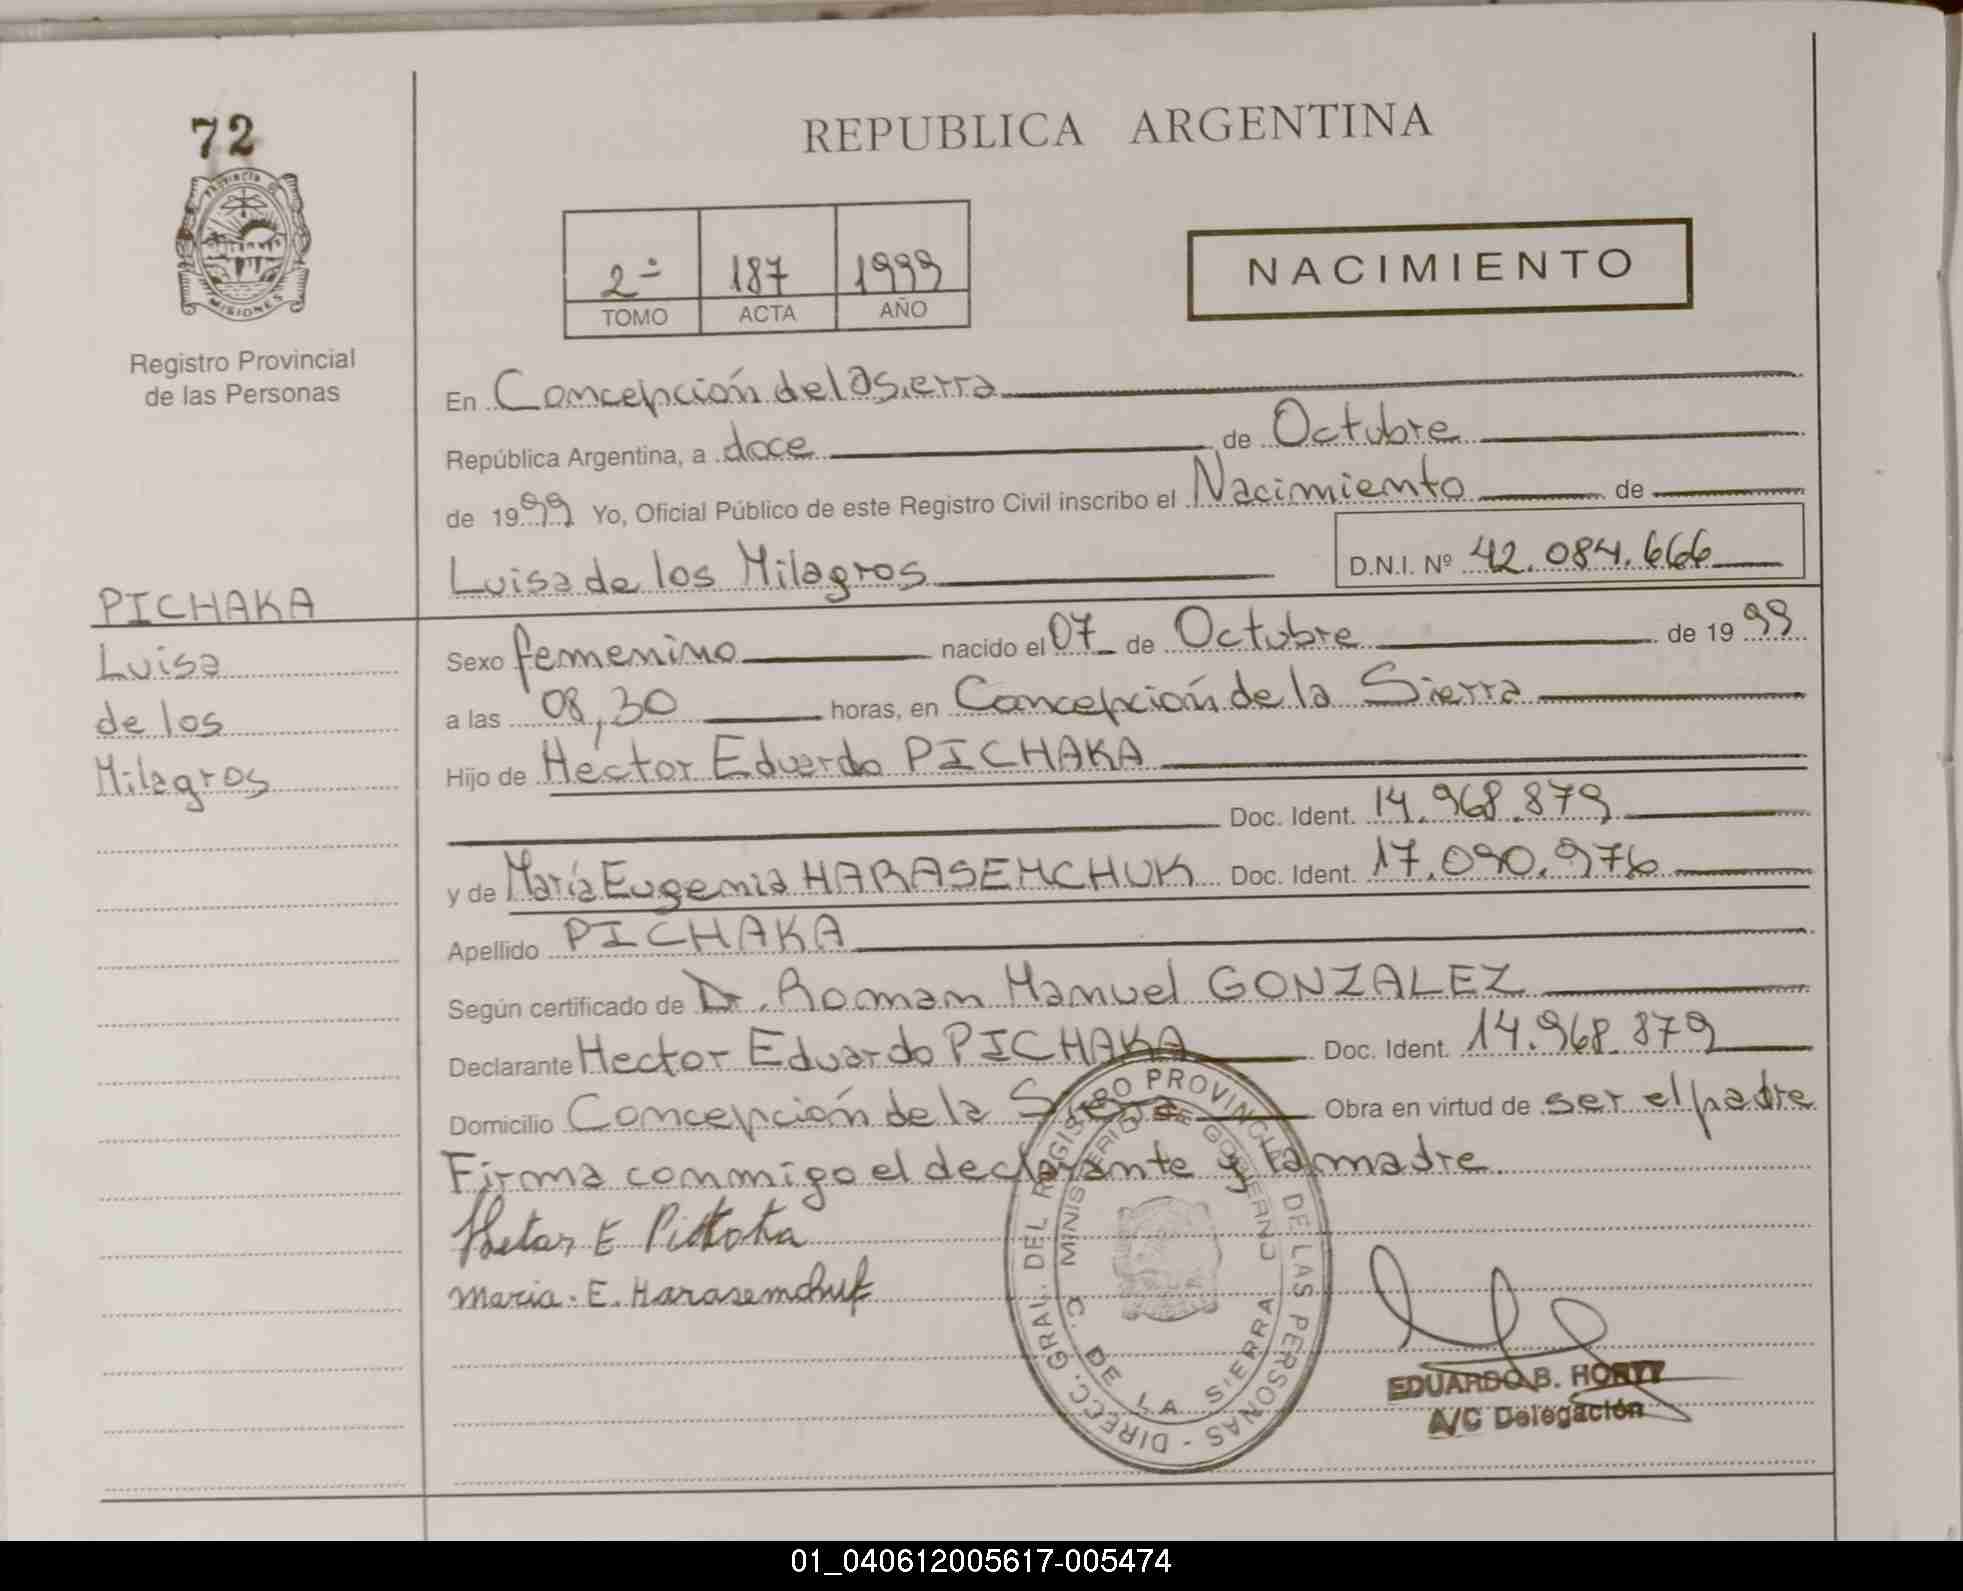 72
PROVINCIA DE
MISIONES
Registro Provincial
de las Personas
REPUBLICA ARGENTINA
2º 187 1999
TOMO ACTA AÑO
NACIMIENTO
En Concepción de la Sierra
República Argentina, a doce de Octubre
de 1999 Yo, Oficial Público de este Registro Civil inscribo el Nacimiento de
Luisa de los Milagros D.N.I. Nº 42.084.666
PICHAKA
Luisa
de los
Milagros
Sexo femenino nacido el 07 de Octubre de 1999
a las 08,30 horas, en Concepción de la Sierra
Hijo de Héctor Eduardo PICHAKA
Doc. Ident. 14.968.879
y de María Eugenia HARASEMCHUK Doc. Ident. 17.090.976
Apellido PICHAKA
Según certificado de Dr. Roman Manuel GONZALEZ
Declarante Hector Eduardo PICHAKA Doc. Ident. 14.968.879
Domicilio Concepción de la Sierra Obra en virtud de ser el padre
Firma conmigo el declarante y la madre
Maria. E. Harasemchuk
DIRECC. GRAL. DEL REGISTRO PROVINCIAL DE LAS PERSONAS -
MINISTERIO DE GOBIERNO
C. DE LA SIERRA
EDUARDO B. HORTT
A/C Delegación
01_040612005617-005474